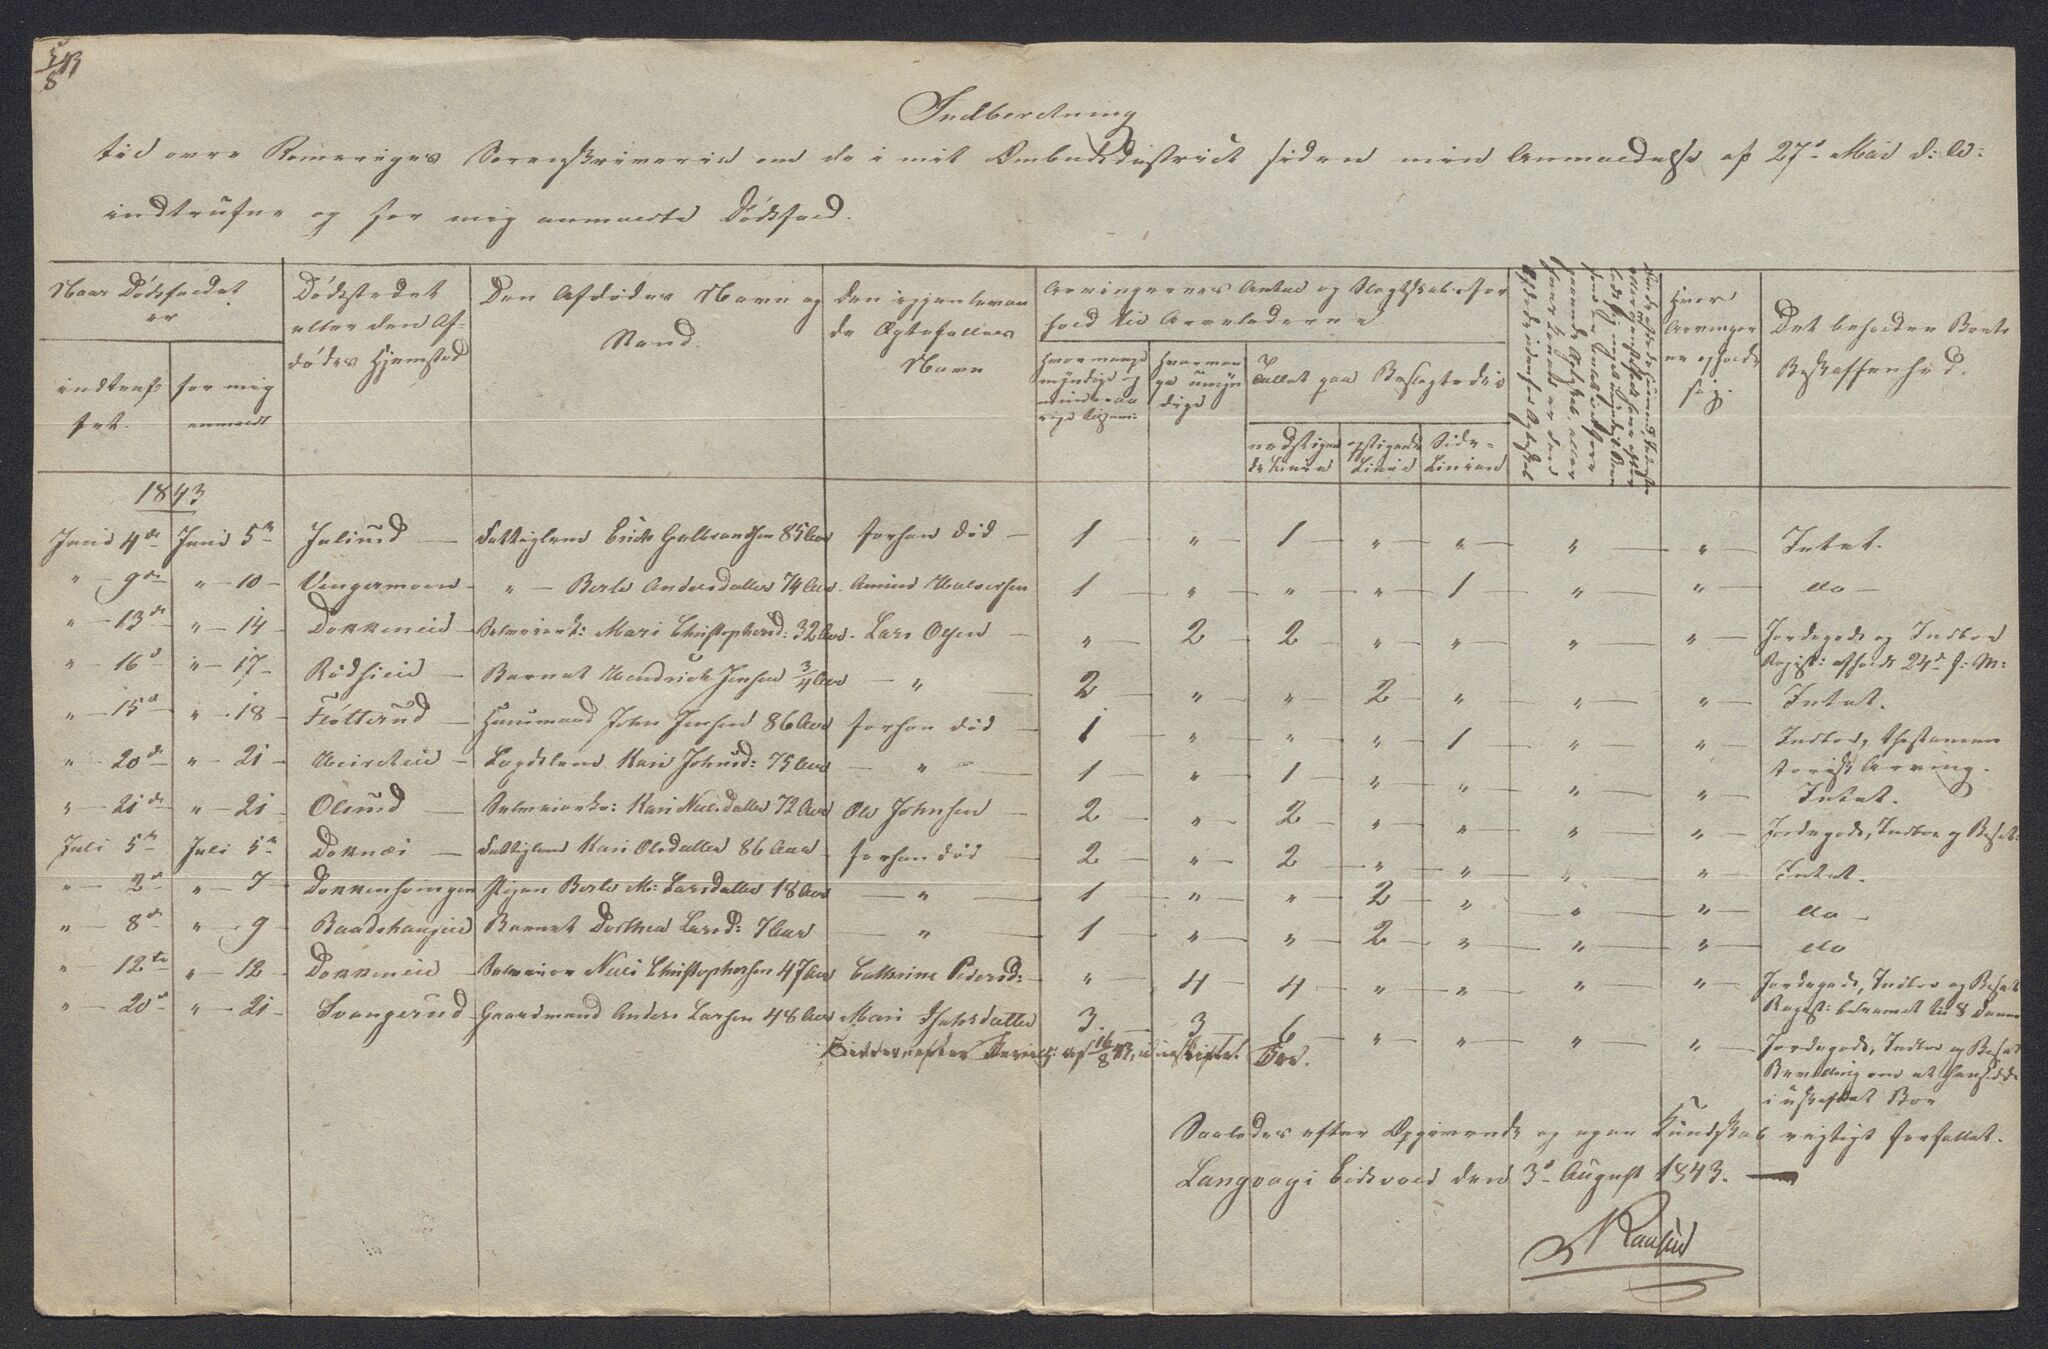 5/8 43
Indberetning
til øvre Romeriges Sorenskriverie om de i mit Ombudsdistrict siden min Anmældelse af 27de Mai d: A:
indtrufne og for mig anmeldte Dødsfald.
Naar Dødsfaldet er
indtruffet.
for mig anmeldt
Dødsstedet eller den Afdødes Hjemsted
Den Afdødes Navn og Stand.
Den igjenlevende Ægtefælles Navn
Arvingernes Antal og Slægtskabsforhold til Arveladeren
Hvormange myndige og mindreaarige tilsam:
Hvormange umyndige
Tallet paa Beslægtede i
nedstigende Linie
opstigende Linie
Side-Linien
Hvor Arvinger opholde sig.
Det beholdne Boets Beskaffenhed.
1843
Juni 4de Juni 5te Julsrud — Fattiglem Erich Gulbrandsen 85 Aar forhen død — 1 — " — 1 — " — " — " — " — Intet.
" — 9de " — 10 — Vengermoen — " — Berte Andersdatter 74 Aar. Amund Halvorsen 1 — " — " — " — 1 — " — " — do —
" — 13de " — 14 — Dokkeneie — Selveiersk: Mari Christophersd: 32 Aar. Lars Olsen — " — 2 — 2 — " — " — " — " — Jordegods og Indboe
Regist: afholdt 24de f: M:
" — 16de " — 17 — Rødseie — Barnet Hendrich Jensen 3/4 Aar — " — 2 — " — " — 2 — " — " — " — Intet.
" — 15de " — 18 — Fløtterud — Huusmand John Jensen 86 Aar forhen død — 1 — " — " — " — 1 — " — " — Indboe, thestamen
torisk Arving.
" — 20de " — 21 — — Lægdslem Kari Johnsd: 75 Aar — " — 1 — " — 1 — " — " — " — " — Intet.
" — 21de " — 21 — Olsrud — Selveierko: Kari Nielsdatter 72 Aar Ole Johnsen — 2 — " — 2 — " — " — " — " — Jordegods, Indboe og Besæt:
Juli 5te Juli 5te Doknæi — Fattiglem Kari Olsdatter 86 Aar forhen død — 2 — " — 2 — " — " — " — " — Intet.
" — 2de " — 7 — Pigen Berte M: Larsdatter 18 Aar — " — 1 — " — " — 2 — " — " — " — do —
" — 8de " — 9 — Baadshaugeie Barnet Dorthea Larsd: 7 Aar — " — 1 — " — " — 2 — " — " — " — do
" — 12te " — 12 — Dokkeneie — Selveier Niels Christophersen 47 Aar Cathrine Pedersd: " — 4 — 4 — " — " — " — " — Jordegods, Indboe og Besæt
Regist: berammet til 8 dennes
" — 20de " — 21 — Svangerud — Gaardmand Anders Larsen 48 Aar Mari 3 — 3 — 6 — " — " — " — " — Jordegods, Indboe og Besæt
Bevilling om at hensidde
i uskiftet Boe
16/8 43
Saaledes efter Opgivende og egen Kundskab rigtigt forfattet.
Langvagi Eidsvold den 3de August 1843. —